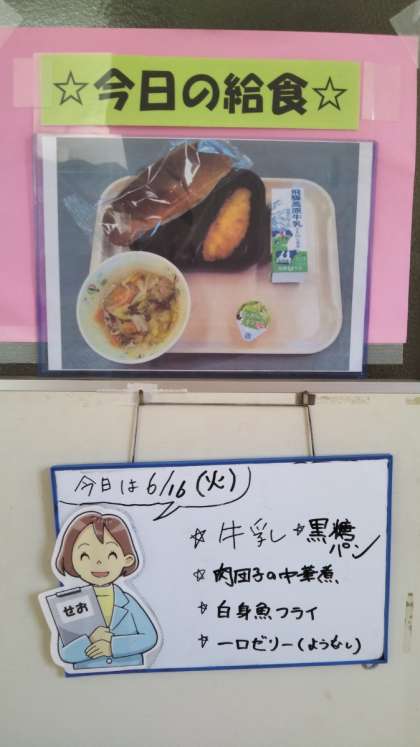 ☆今日の給食☆
飛騨高原牛乳
今日は6/16(火)
☆牛乳 ☆黒糖パン
☆肉団子の中華煮
☆白身魚フライ
☆一口ゼリー(ようなし)
せお